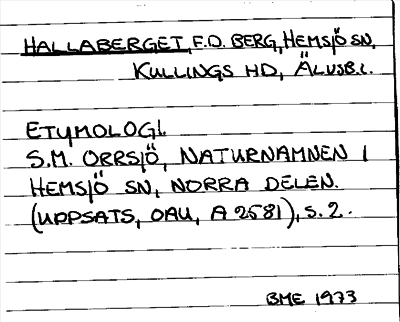 HALLABERGET, F.D. BERG, HEMSJÖ SN,
KULLINGS HD, ÄLVSB.L.
ETYMOLOGI.
S.M. ORRSJÖ, NATURNAMNEN I
HEMSJÖ SN, NORRA DELEN.
(UPPSATS, OAU, A 2581), S. 2.
BME 1973